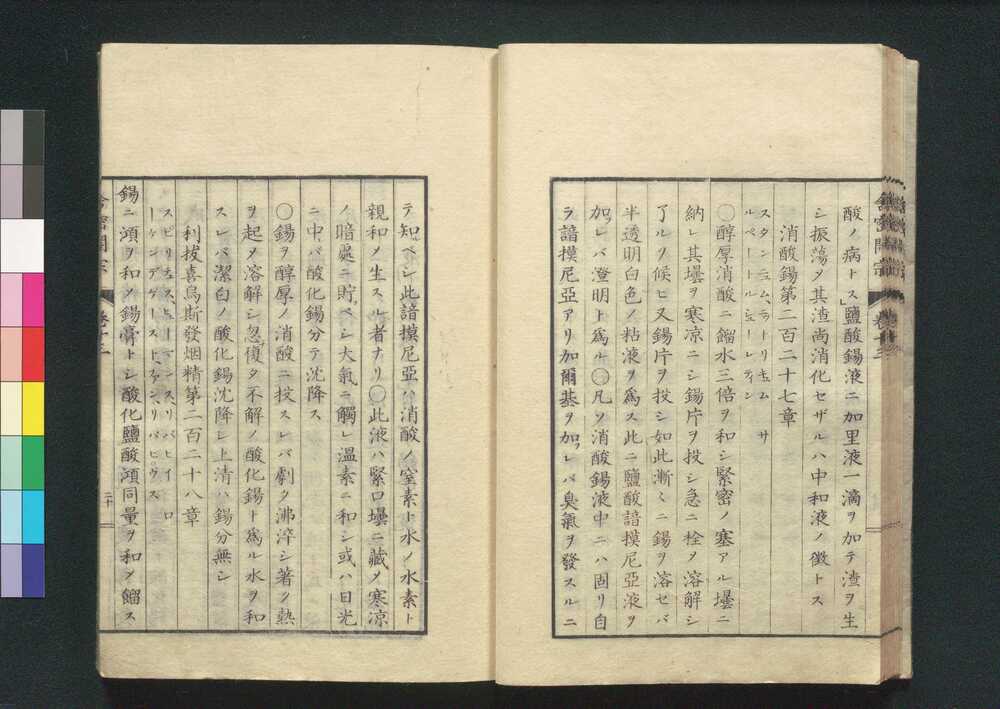 酸ノ病トス」鹽酸錫液ニ加里液一滴ヲ加テ渣ヲ生
シ振蕩メ其渣尚消化セザルハ中和液ノ徴トス
消酸錫第二百二十七章
スタンニュム、ニトーリキュム サ
ルペートルシューレ、ティン
〇醇厚消酸ニ餾水三倍ヲ和シ緊密ノ塞アル壜ニ
納レ其壜ヲ寒凉ニシ錫片ヲ投シ急ニ栓ヲ溶解シ
了ルヲ候ヒ又錫片ヲ投シ如此漸々ニ錫ヲ溶セバ
半透明白色ノ粘液ヲ為ス此ニ鹽酸諳摸尼亞液ヲ
加レバ澄明ト為ル〇凡ソ消酸錫液中ニハ固リ自
ラ諳摸尼亞アリ加爾基ヲ加レバ臭氣ヲ發スルニ
テ知ベシ此諳摸尼亞ハ消酸ノ窒素ト水ノ水素ト
親和メ生スル者ナリ〇此液ハ緊口壜ニ藏メ寒凉
ノ暗處ニ貯ベシ大氣ニ觸レ温素ニ和シ或ハ日光
ニ中バ酸化錫分テ沈降ス
〇錫ヲ醇厚ノ消酸ニ投スレバ劇ク沸淬シ著ク熱
ヲ起メ溶解シ忽復タ不解ノ酸化錫ト為ル水ヲ和
スレバ潔白ノ酸化錫沈降シ上清ハ錫分無シ
利拔喜烏斯發烟精第二百二十八章
スピリチュス、ヒューマンス、リバヒイ ロ
ーケンデゲースト、ファン、リバヒウス
錫ニ澒ヲ和メ錫膏トシ酸化鹽酸澒同量ヲ和シ餾ス